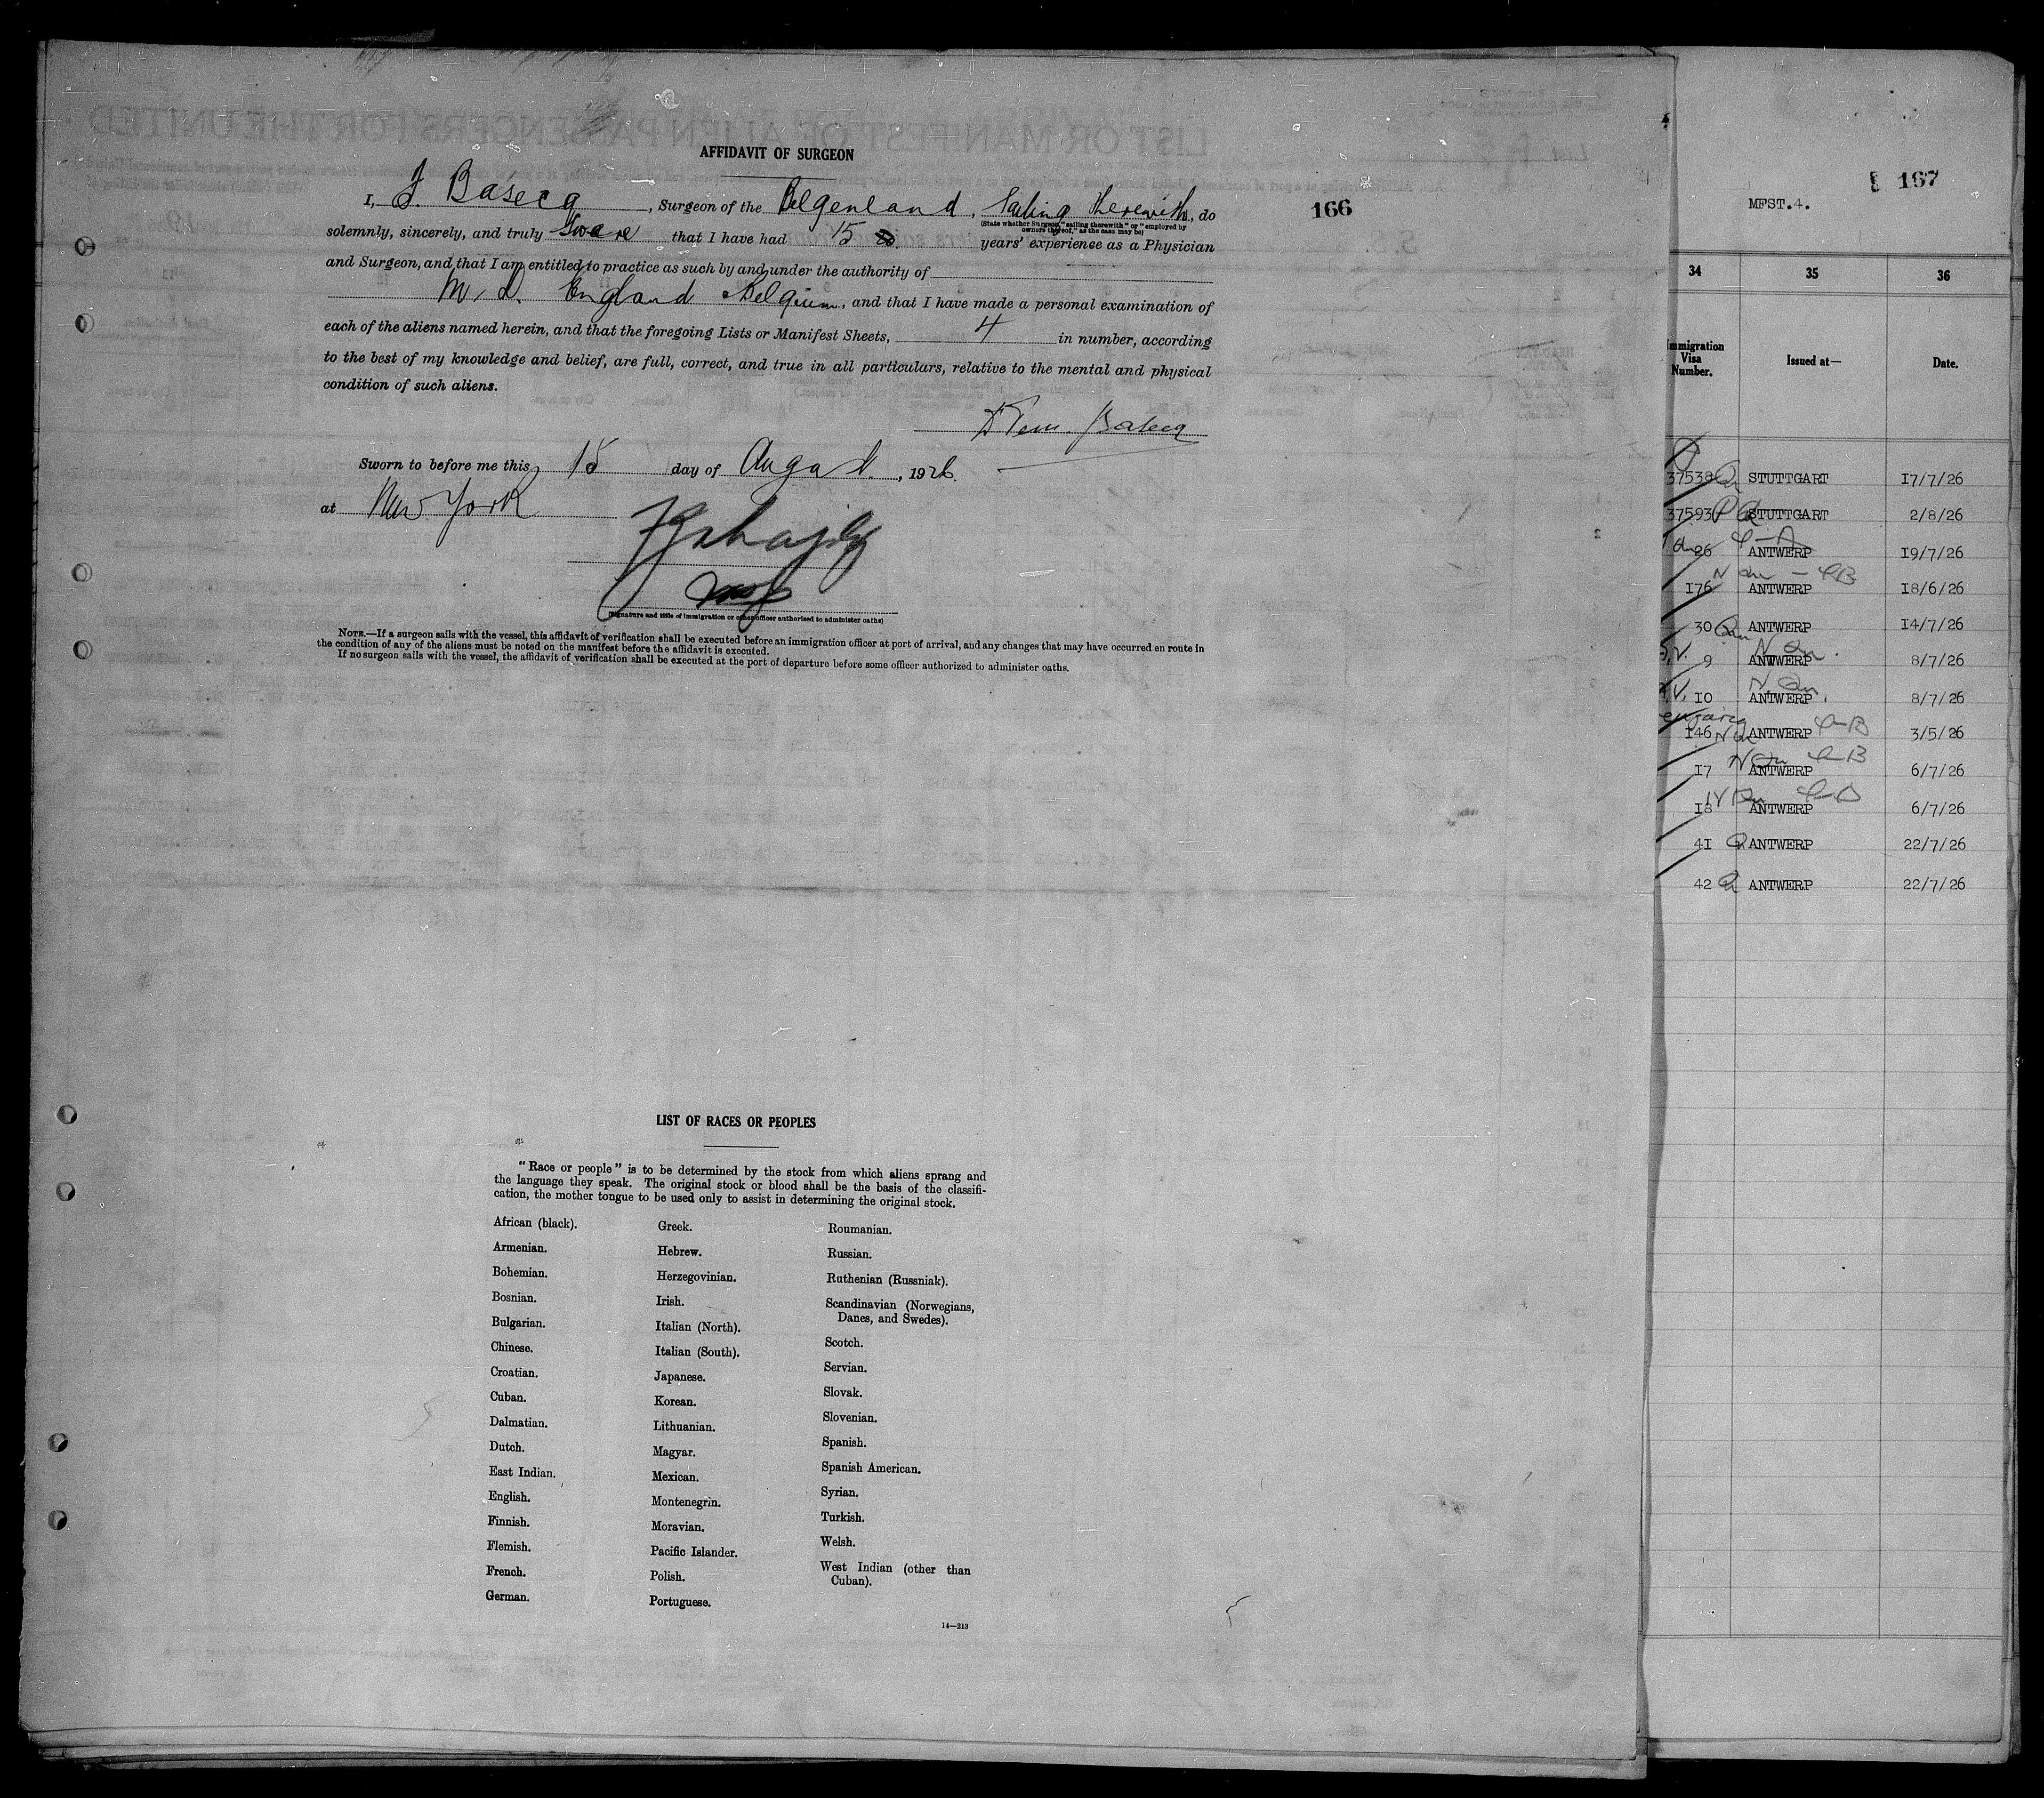 AFFIDAVIT OF SURGEON
I, J. Basecq, Surgeon of the Belgenland, Sailing therewith, do
(State whether Surgeon, "sailing therewith" or "employed by
owners thereof," as the case may be)
solemnly, sincerely, and truly Sware that I have had 15 years' experience as a Physician
and Surgeon, and that I am entitled to practice as such by and under the authority of
M. D. England Belgium, and that I have made a personal examination of
each of the aliens named herein, and that the foregoing Lists or Manifest Sheets, 4 in number, according
to the best of my knowledge and belief, are full, correct, and true in all particulars, relative to the mental and physical
condition of such aliens.
Basecq
Sworn to before me this 15 day of August, 1926.
at New York
(Signature and title of immigration or other officer authorized to administer oaths)
NOTE.—If a surgeon sails with the vessel, this affidavit of verification shall be executed before an immigration officer at port of arrival, and any changes that may have occurred en route in
the condition of any of the aliens must be noted on the manifest before the affidavit is executed.
If no surgeon sails with the vessel, the affidavit of verification shall be executed at the port of departure before some officer authorized to administer oaths.
166
LIST OF RACES OR PEOPLES
"Race or people" is to be determined by the stock from which aliens sprang and
the language they speak. The original stock or blood shall be the basis of the classifi-
cation, the mother tongue to be used only to assist in determining the original stock.
African (black).
Armenian.
Bohemian.
Bosnian.
Bulgarian.
Chinese.
Croatian.
Cuban.
Dalmatian.
Dutch.
East Indian.
English.
Finnish.
Flemish.
French.
German.
Greek.
Hebrew.
Herzegovinian.
Irish.
Italian (North).
Italian (South).
Japanese.
Korean.
Lithuanian.
Magyar.
Mexican.
Montenegrin.
Moravian.
Pacific Islander.
Polish.
Portuguese.
Roumanian.
Russian.
Ruthenian (Russniak).
Scandinavian (Norwegians,
Danes, and Swedes).
Scotch.
Servian.
Slovak.
Slovenian.
Spanish.
Spanish American.
Syrian.
Turkish.
Welsh.
West Indian (other than
Cuban).
14—213
167
MFST.4.
34 35 36
Immigration
Visa
Number.
Issued at—
Date.
37538 STUTTGART 17/7/26
37593 STUTTGART 2/8/26
26 ANTWERP 19/7/26
176 ANTWERP 18/6/26
30 ANTWERP 14/7/26
9 ANTWERP 8/7/26
10 ANTWERP 8/7/26
146 ANTWERP 3/5/26
17 ANTWERP 6/7/26
18 ANTWERP 6/7/26
41 ANTWERP 22/7/26
42 ANTWERP 22/7/26